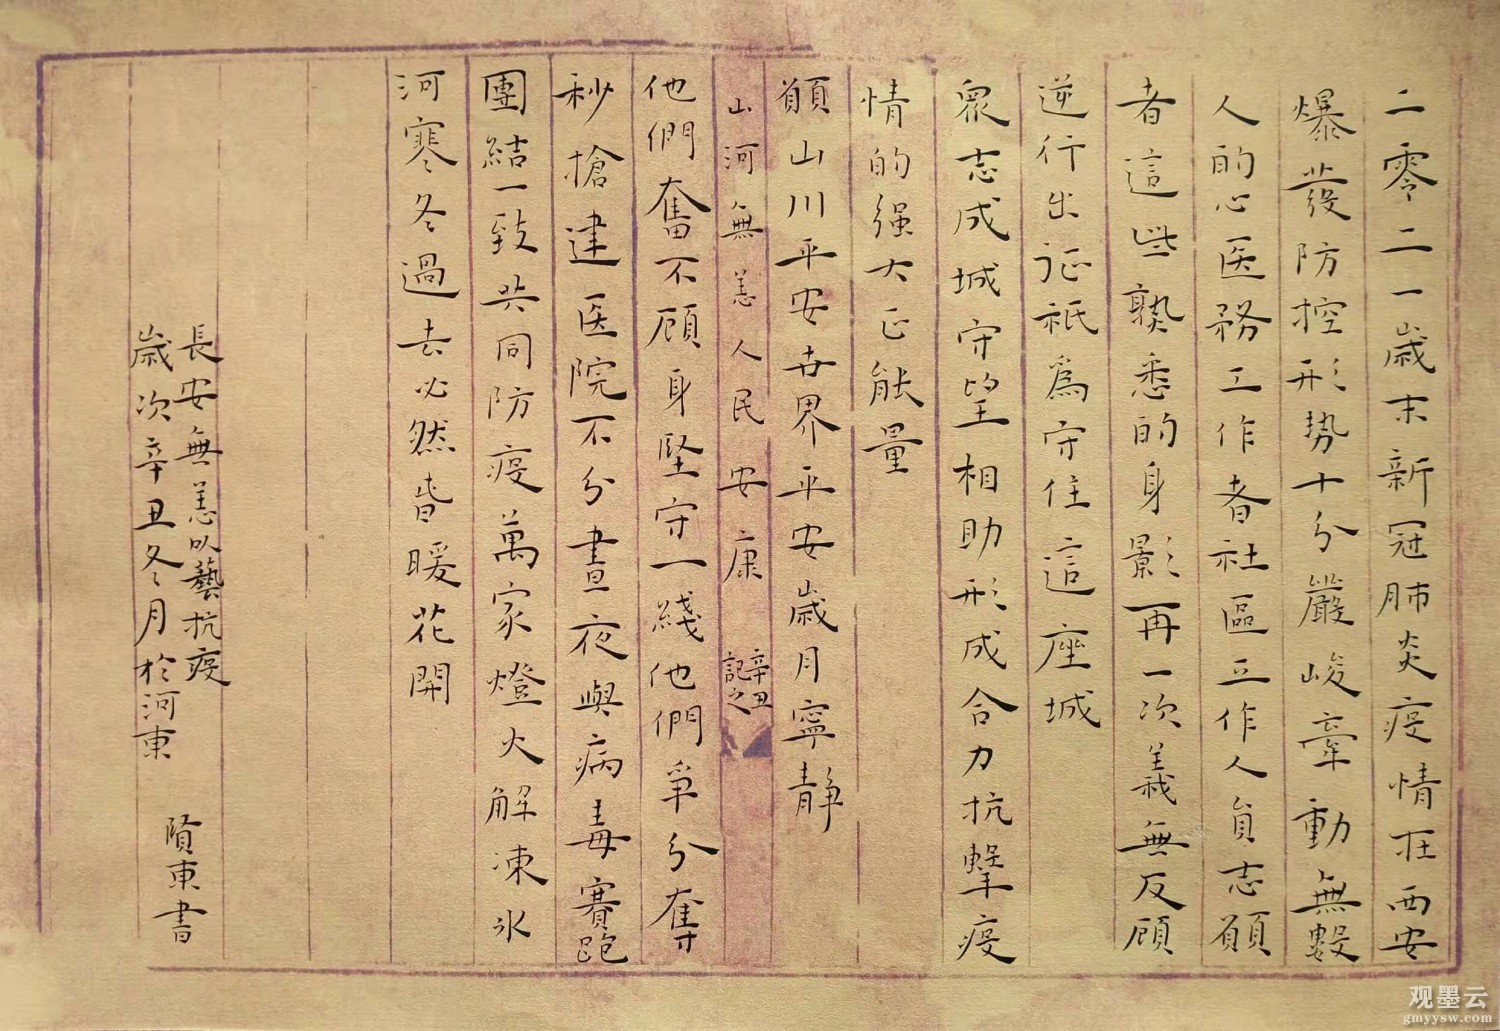 二零二一歲末新冠肺炎疫情在西安
爆發防控形勢十分嚴峻牽動無數
人的心医務工作者社區工作人員志願
者這些熟悉的身影再一次義無反顧
逆行出征祇為守住這座城
眾志成城守望相助形成合力抗擊疫
情的强大正能量
願山川平安世界平安歲月寧静
山河無恙人民安康 辛丑
記之
他們奮不顧身堅守一綫他們爭分奪
秒搶建医院不分晝夜與病毒賽跑
團結一致共同防疫萬家燈火解凍冰
河寒冬過去必然春暖花開
長安無恙以藝抗疫
歲次辛丑冬月於河東
賢東書
观墨云
gmyysw.com